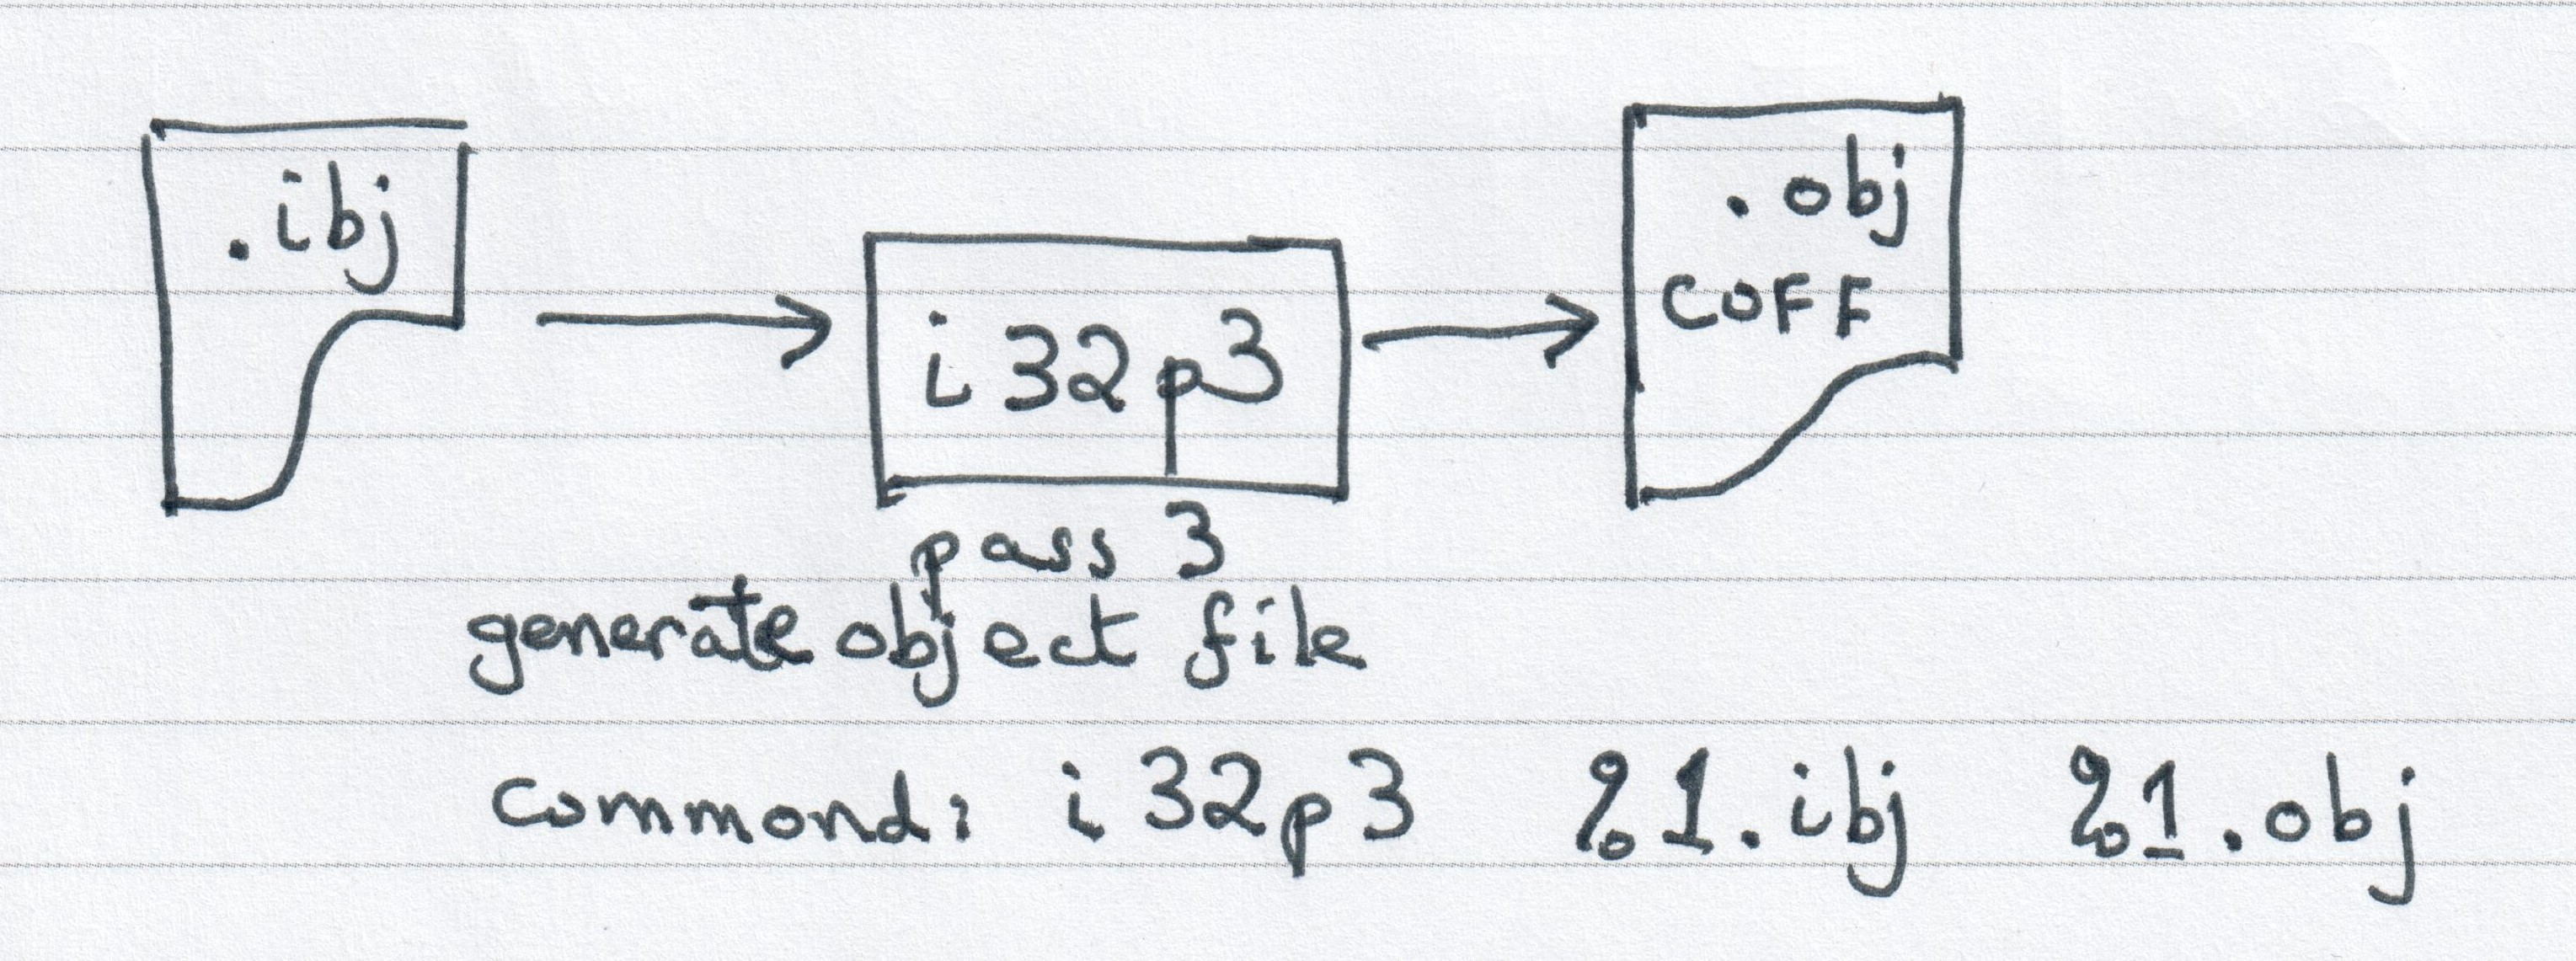 .ibj
i32p3
.obj
COFF
pass 3
generate object file
Commond: i32p3 %1.ibj %1.obj